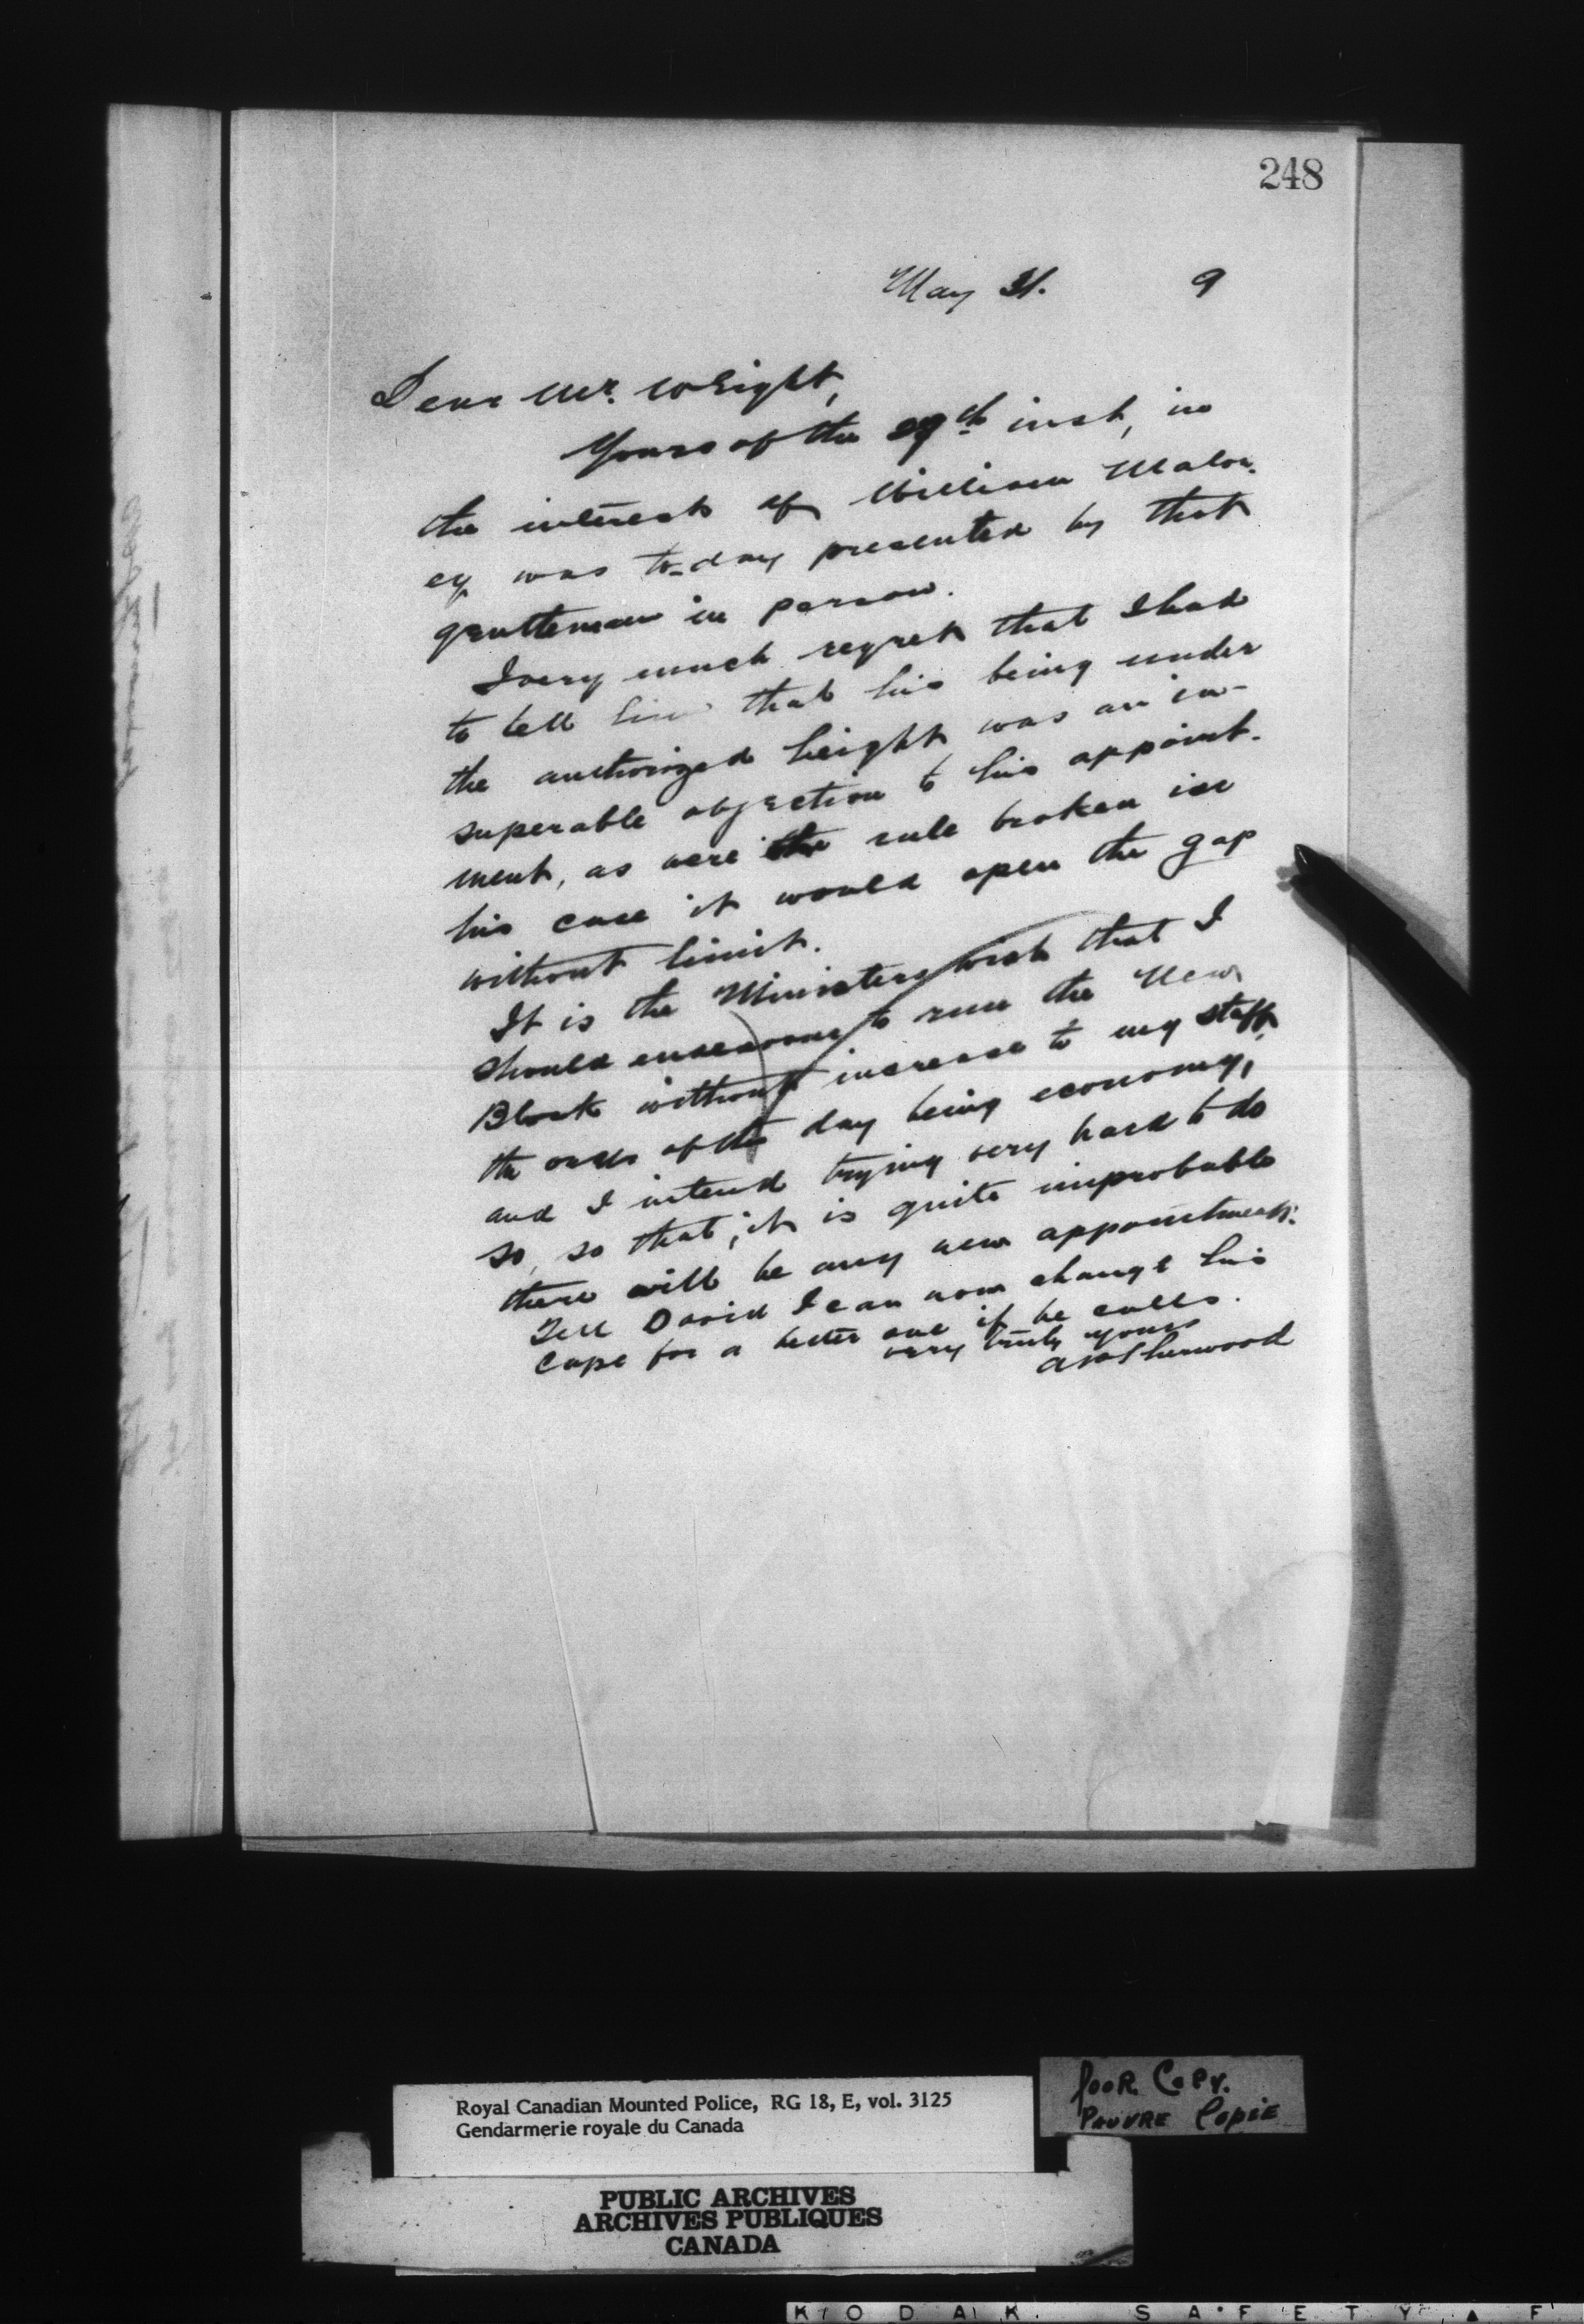 248
May 31. 9
Dear Mr. Wright,
Yours of the 29th inst, in
the interest of William Malon-
ey was to-day presented by that
gentleman in person.
I very much regret that I had
to tell him that his being under
the authorized height was an in-
superable objection to his appoint-
ment, as were the rule broken in
his case it would open the gap
without limit.
It is the Ministers wish that I
should endeavour to run the New
Block without increase to my staff,
the order of the day being economy,
and I intend trying very hard to do
so, so that, it is quite improbable
there will be any new appointments.
Tell David I can now change his
Cape for a better one if he calls.
very truly yours
A P Sherwood
Royal Canadian Mounted Police, RG 18, E, vol. 3125
Gendarmerie royale du Canada
Poor Copy.
Pauvre Copie
PUBLIC ARCHIVES
ARCHIVES PUBLIQUES
CANADA
KODAK SAFETY F